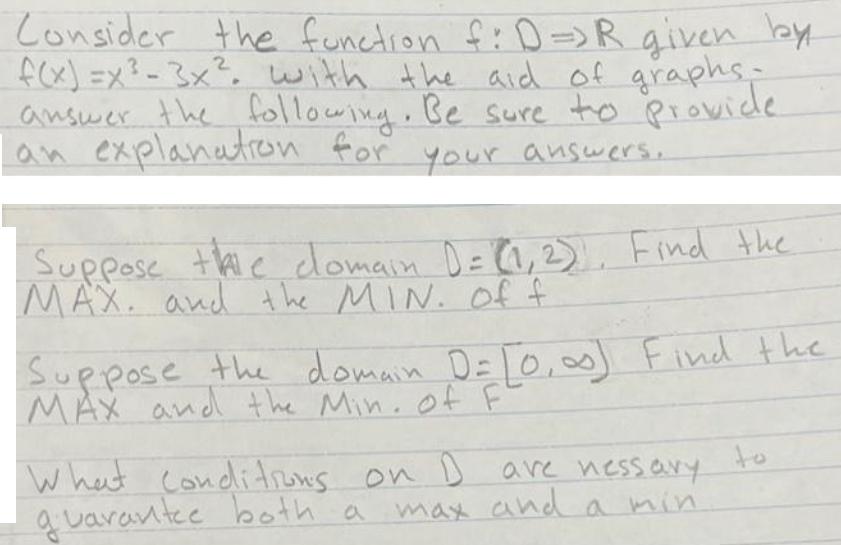 Consider the function f: D => R given by
f(x) = x³ - 3x². with the aid of graphs -
answer the following. Be sure to provide
an explanation for your answers.
Suppose the domain D = (1, 2). Find the
MAX. and the MIN. Of f
Suppose the domain D = [0, ∞) Find the
MAX and the Min. of F
What conditions on D are nessary to
guarantee both a max and a min